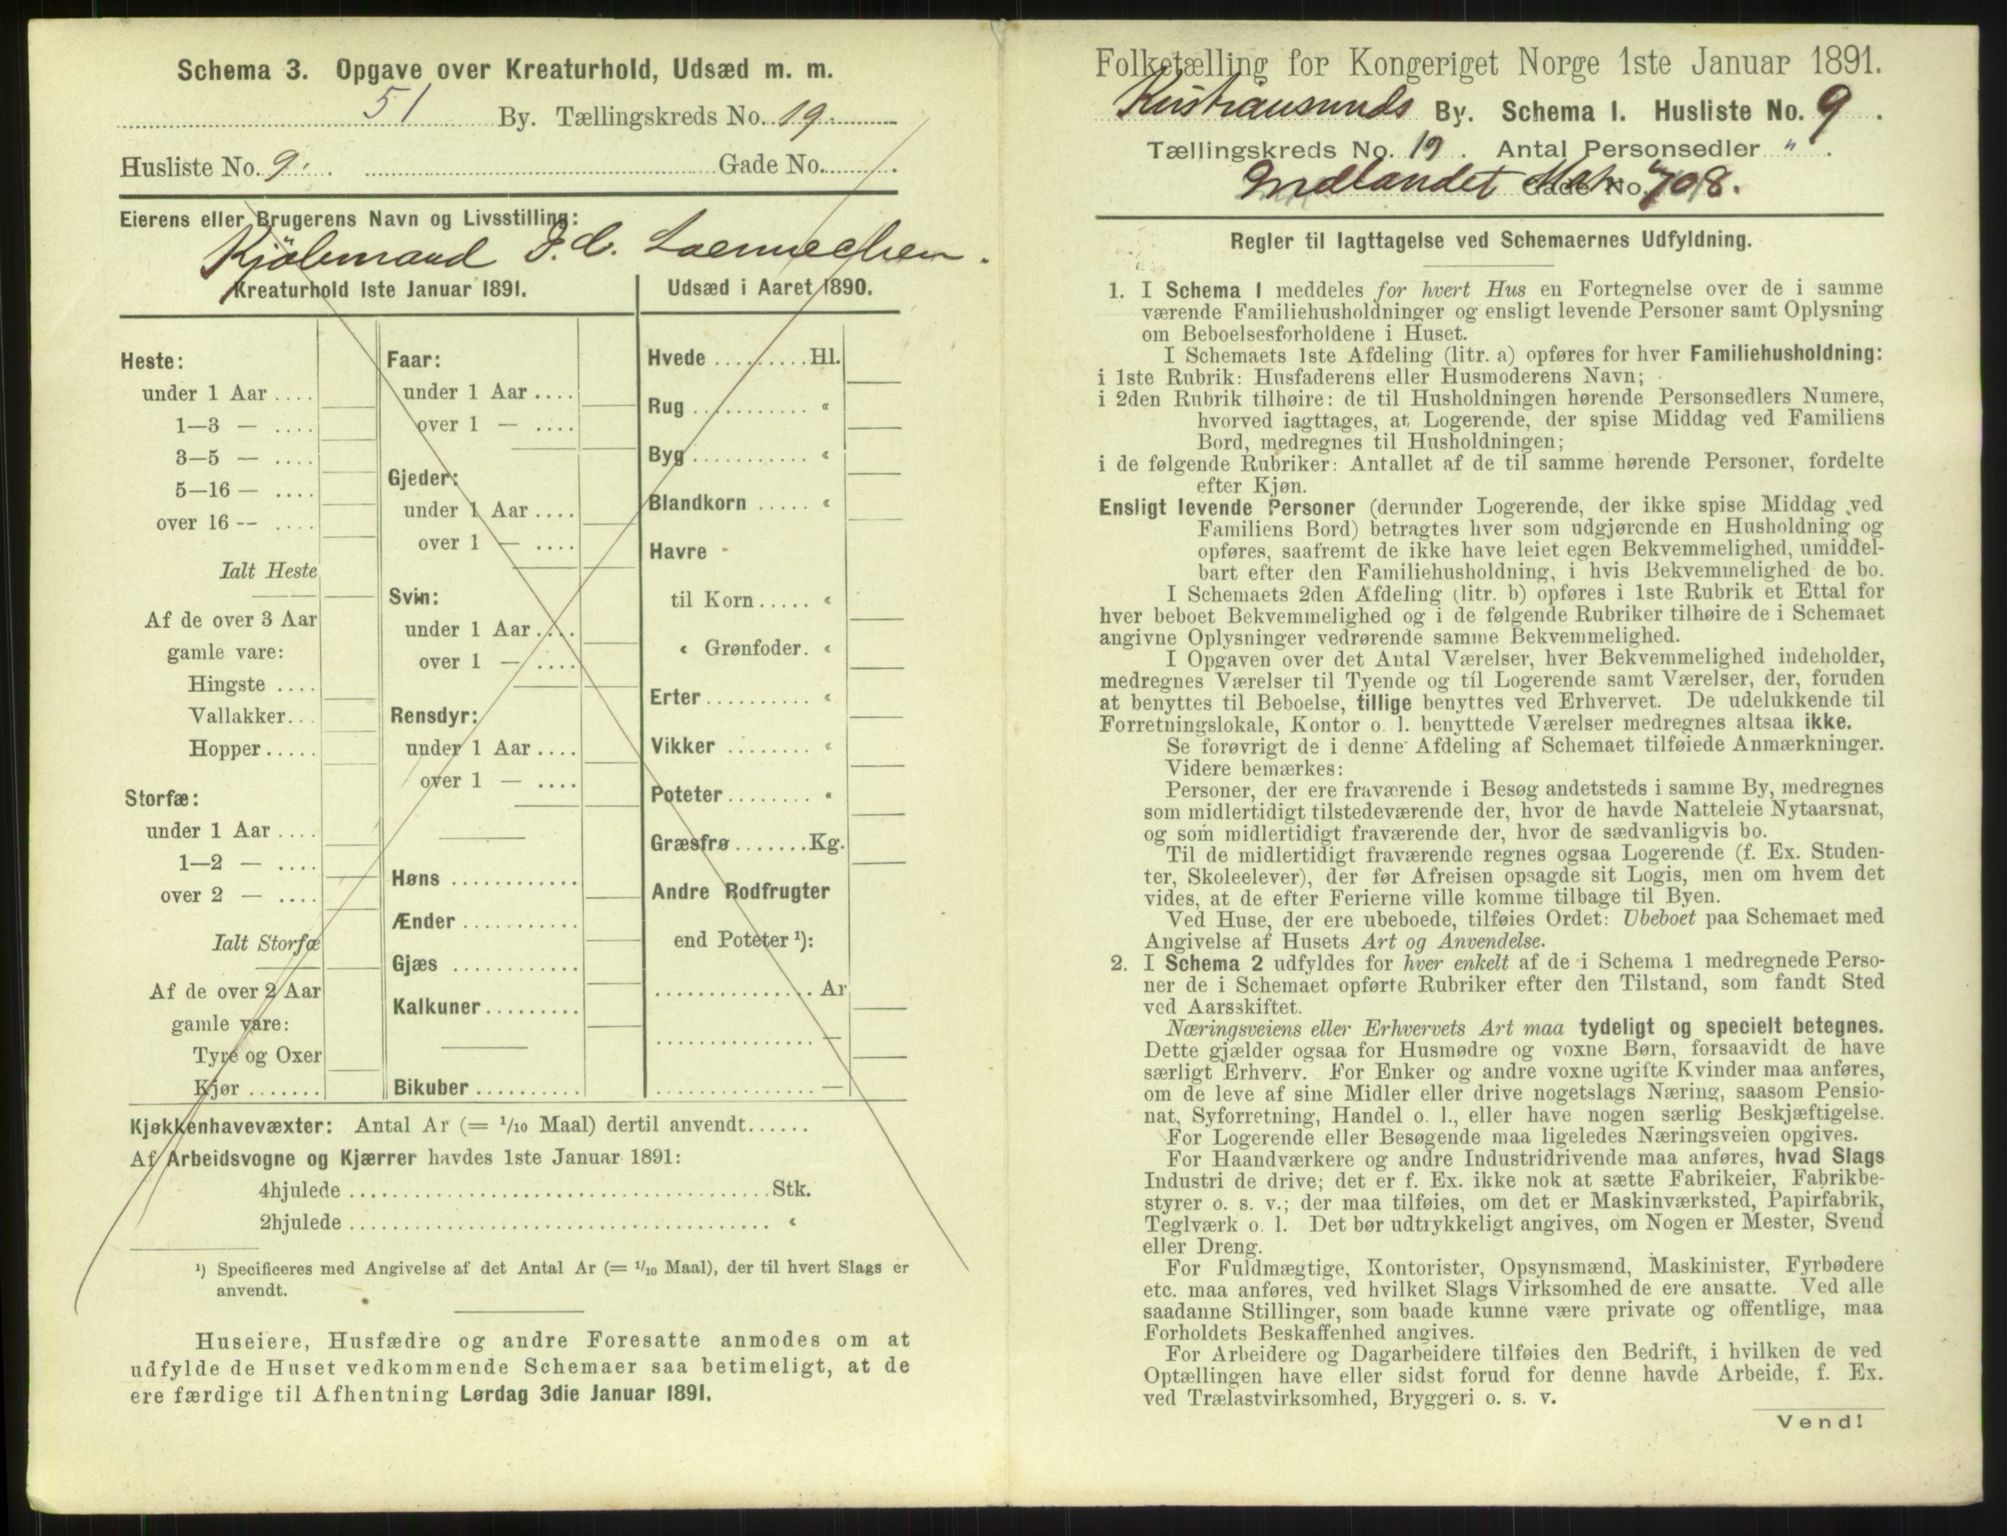 Schema 3. Opgave over Kreaturhold, Udsæd m. m.
51
By. Tællingskreds No. 19.
Husliste No. 9. Gade No.
Eierens eller Brugerens Navn og Livsstilling:
Kjöbmand J. C.
Kreaturhold 1ste Januar 1891.
Heste:
under 1 Aar ....
1—3 — ....
3—5 — ....
5—16 — ....
over 16 -- ....
Ialt Heste
Af de over 3 Aar
gamle vare:
Hingste ....
Vallakker...
Hopper .....
Storfæ:
under 1 Aar ....
1—2 — ....
over 2 — ....
Ialt Storfæ
Af de over 2 Aar
gamle vare:
Tyre og Oxer
Kjør .......
Faar:
under 1 Aar ....
over 1 — ....
Gjeder:
under 1 Aar ....
over 1 — ....
Svin:
under 1 Aar ....
over 1 — ....
Rensdyr:
under 1 Aar ....
over 1 — ....
Høns ............
Ænder ...........
Gjæs ............
Kalkuner.........
Bikuber ..........
Udsæd i Aaret 1890.
Hvede .........Hl.
Rug ........... «
Byg ........... «
Blandkorn ..... «
Havre
til Korn ..... «
« Grønfoder. «
Erter.......... «
Vikker ........ «
Poteter........ «
Græsfrø .......Kg.
Andre Rodfrugter
end Poteter ¹):
............... Ar
............... —
............... —
Kjøkkenhavevæxter: Antal Ar (= 1/10 Maal) dertil anvendt......
Af Arbeidsvogne og Kjærrer havdes 1ste Januar 1891:
4hjulede ........................................ Stk.
2hjulede ........................................ «
¹) Specificeres med Angivelse af det Antal Ar (= 1/10 Maal), der til hvert Slags er
anvendt.
Huseiere, Husfædre og andre Foresatte anmodes om at
udfylde de Huset vedkommende Schemaer saa betimeligt, at de
ere færdige til Afhentning Lørdag 3die Januar 1891.
Folketælling for Kongeriget Norge 1ste Januar 1891.
Kristiansunds By. Schema I. Husliste No. 9.
Tællingskreds No. 19. Antal Personsedler " .
Indlandet Gade No. Mat. No 708.
Regler til Iagttagelse ved Schemaernes Udfyldning.
1. I Schema 1 meddeles for hvert Hus en Fortegnelse over de i samme
værende Familiehusholdninger og ensligt levende Personer samt Oplysning
om Beboelsesforholdene i Huset.
I Schemaets 1ste Afdeling (litr. a) opføres for hver Familiehusholdning:
i 1ste Rubrik: Husfaderens eller Husmoderens Navn;
i 2den Rubrik tilhøire: de til Husholdningen hørende Personsedlers Numere,
hvorved iagttages, at Logerende, der spise Middag ved Familiens
Bord, medregnes til Husholdningen;
i de følgende Rubriker: Antallet af de til samme hørende Personer, fordelte
efter Kjøn.
Ensligt levende Personer (derunder Logerende, der ikke spise Middag ved
Familiens Bord) betragtes hver som udgjørende en Husholdning og
opføres, saafremt de ikke have leiet egen Bekvemmelighed, umiddel-
bart efter den Familiehusholdning, i hvis Bekvemmelighed de bo.
I Schemaets 2den Afdeling (litr. b) opføres i 1ste Rubrik et Ettal for
hver beboet Bekvemmelighed og i de følgende Rubriker tilhøire de i Schemaet
angivne Oplysninger vedrørende samme Bekvemmelighed.
I Opgaven over det Antal Værelser, hver Bekvemmelighed indeholder,
medregnes Værelser til Tyende og til Logerende samt Værelser, der, foruden
at benyttes til Beboelse, tillige benyttes ved Erhvervet. De udelukkende til
Forretningslokale, Kontor o. l. benyttede Værelser medregnes altsaa ikke.
Se forøvrigt de i denne Afdeling af Schemaet tilføiede Anmærkninger.
Videre bemærkes:
Personer, der ere fraværende i Besøg andetsteds i samme By, medregnes
som midlertidigt tilstedeværende der, hvor de havde Natteleie Nytaarsnat,
og som midlertidigt fraværende der, hvor de sædvanligvis bo.
Til de midlertidigt fraværende regnes ogsaa Logerende (f. Ex. Studen-
ter, Skoleelever), der før Afreisen opsagde sit Logis, men om hvem det
vides, at de efter Ferierne ville komme tilbage til Byen.
Ved Huse, der ere ubeboede, tilføies Ordet: Ubeboet paa Schemaet med
Angivelse af Husets Art og Anvendelse.
2. I Schema 2 udfyldes for hver enkelt af de i Schema 1 medregnede Perso-
ner de i Schemaet opførte Rubriker efter den Tilstand, som fandt Sted
ved Aarsskiftet.
Næringsveiens eller Erhvervets Art maa tydeligt og specielt betegnes.
Dette gjælder ogsaa for Husmødre og voxne Børn, forsaavidt de have
særligt Erhverv. For Enker og andre voxne ugifte Kvinder maa anføres,
om de leve af sine Midler eller drive nogetslags Næring, saasom Pensio-
nat, Syforretning, Handel o. l., eller have nogen særlig Beskjæftigelse.
For Logerende eller Besøgende maa ligeledes Næringsveien opgives.
For Haandværkere og andre Industridrivende maa anføres, hvad Slags
Industri de drive; det er f. Ex. ikke nok at sætte Fabrikeier, Fabrikbe-
styrer o. s. v.; der maa tilføies, om det er Maskinværksted, Papirfabrik,
Teglværk o. l. Det bør udtrykkeligt angives, om Nogen er Mester, Svend
eller Dreng.
For Fuldmægtige, Kontorister, Opsynsmænd, Maskinister, Fyrbødere
etc. maa anføres, ved hvilket Slags Virksomhed de ere ansatte. Ved alle
saadanne Stillinger, som baade kunne være private og offentlige, maa
Forholdets Beskaffenhed angives.
For Arbeidere og Dagarbeidere tilføies den Bedrift, i hvilken de ved
Optællingen have eller sidst forud for denne havde Arbeide, f. Ex.
ved Trælastvirksomhed, Bryggeri o. s. v.
Vend!